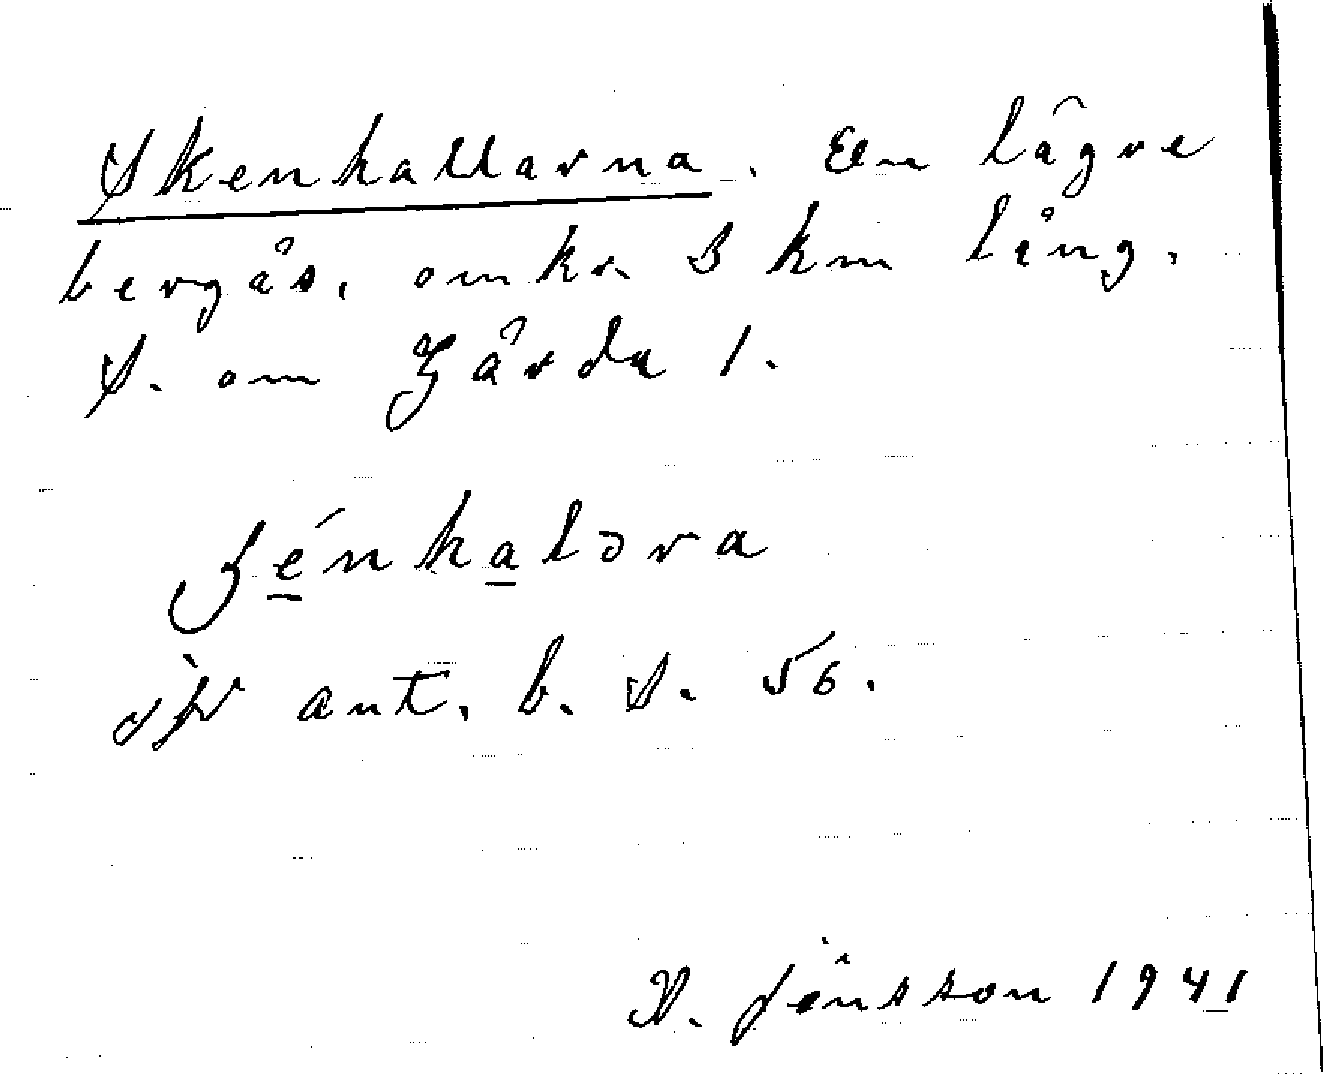 Skenhallarna. En lägre
bergås, omkr. 3 km lång.
S. om Gärda 1.
ant. b. S. 56.
Jönsson 1941